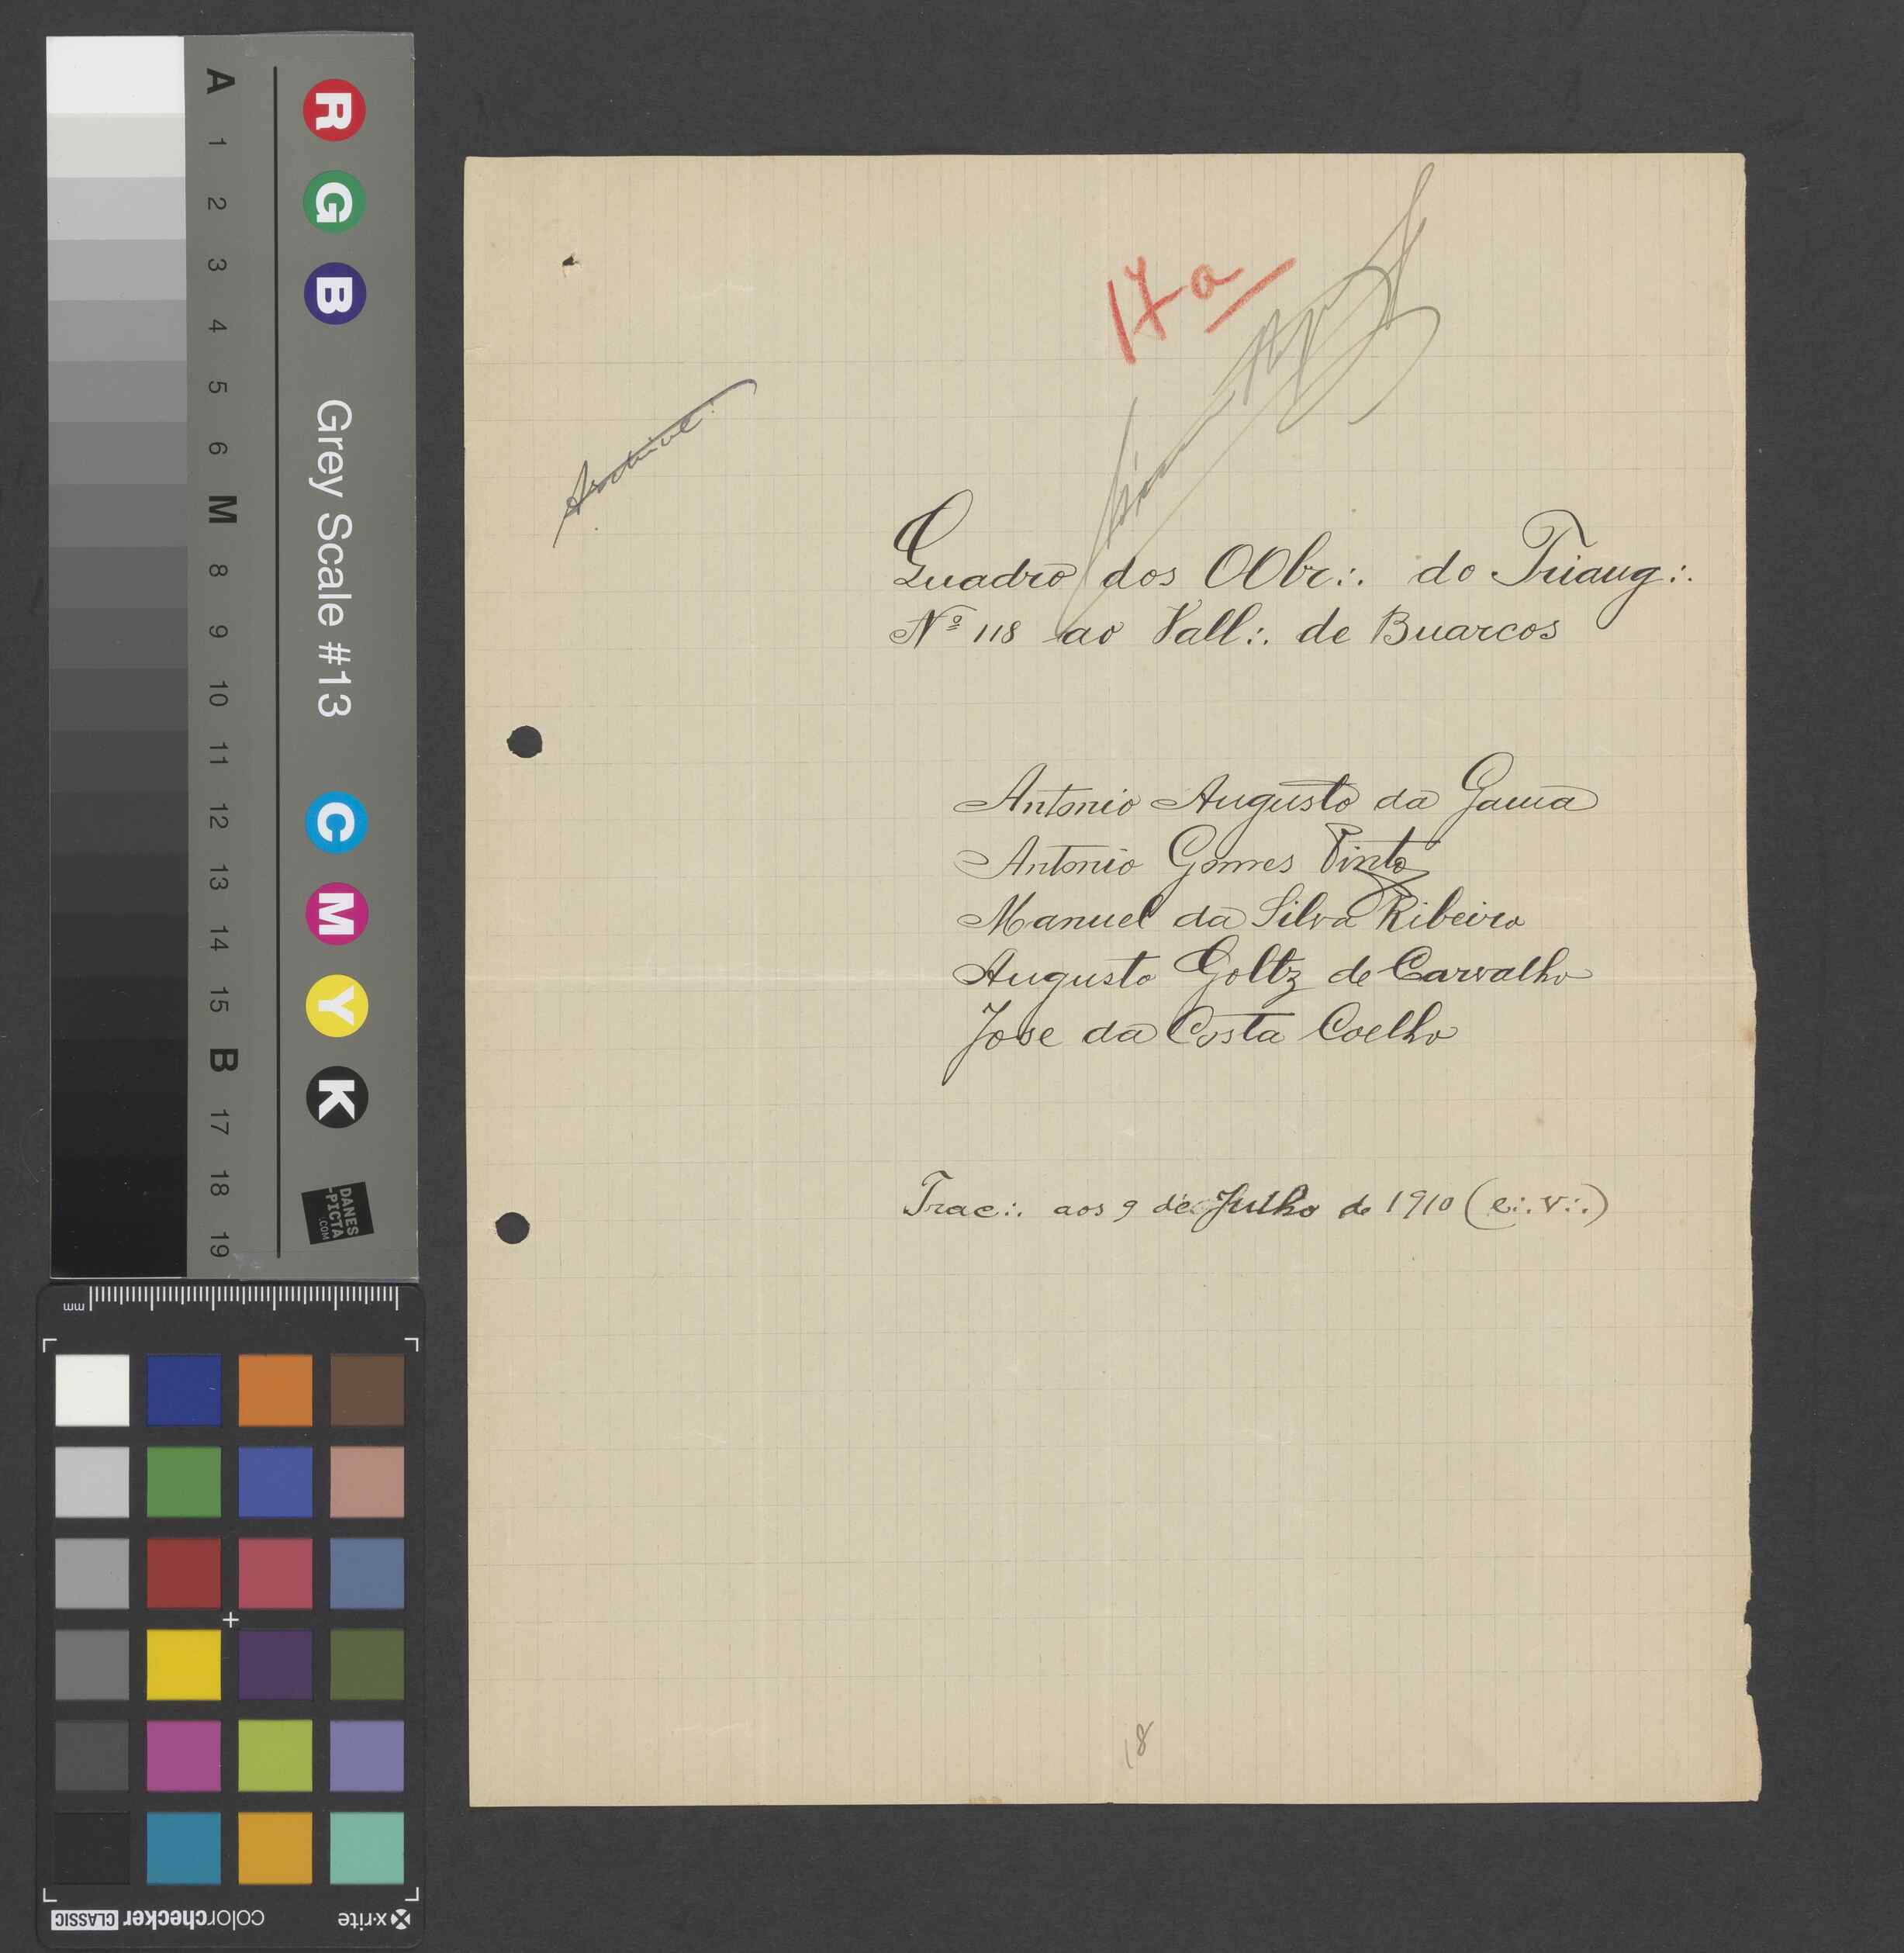 A
1
2
3
4
5
6
M
8
9
10
11
12
13
14
15
B
17
18
19
R
G
B
Grey Scale #13
C
M
Y
K
DANES
-PICTA
.COM
mm
colorchecker CLASSIC
x-rite
17 a
Quadro dos OObr∴ do Triang∴
Nº 118 ao Vall∴ de Buarcos
Antonio Augusto da Gama
Antonio Gomes Pinto
Manuel da Silva Ribeiro
Augusto Goltz de Carvalho
Jose da Costa Coelho
Trac∴ aos 9 de Julho de 1910 (e∴ v∴)
18